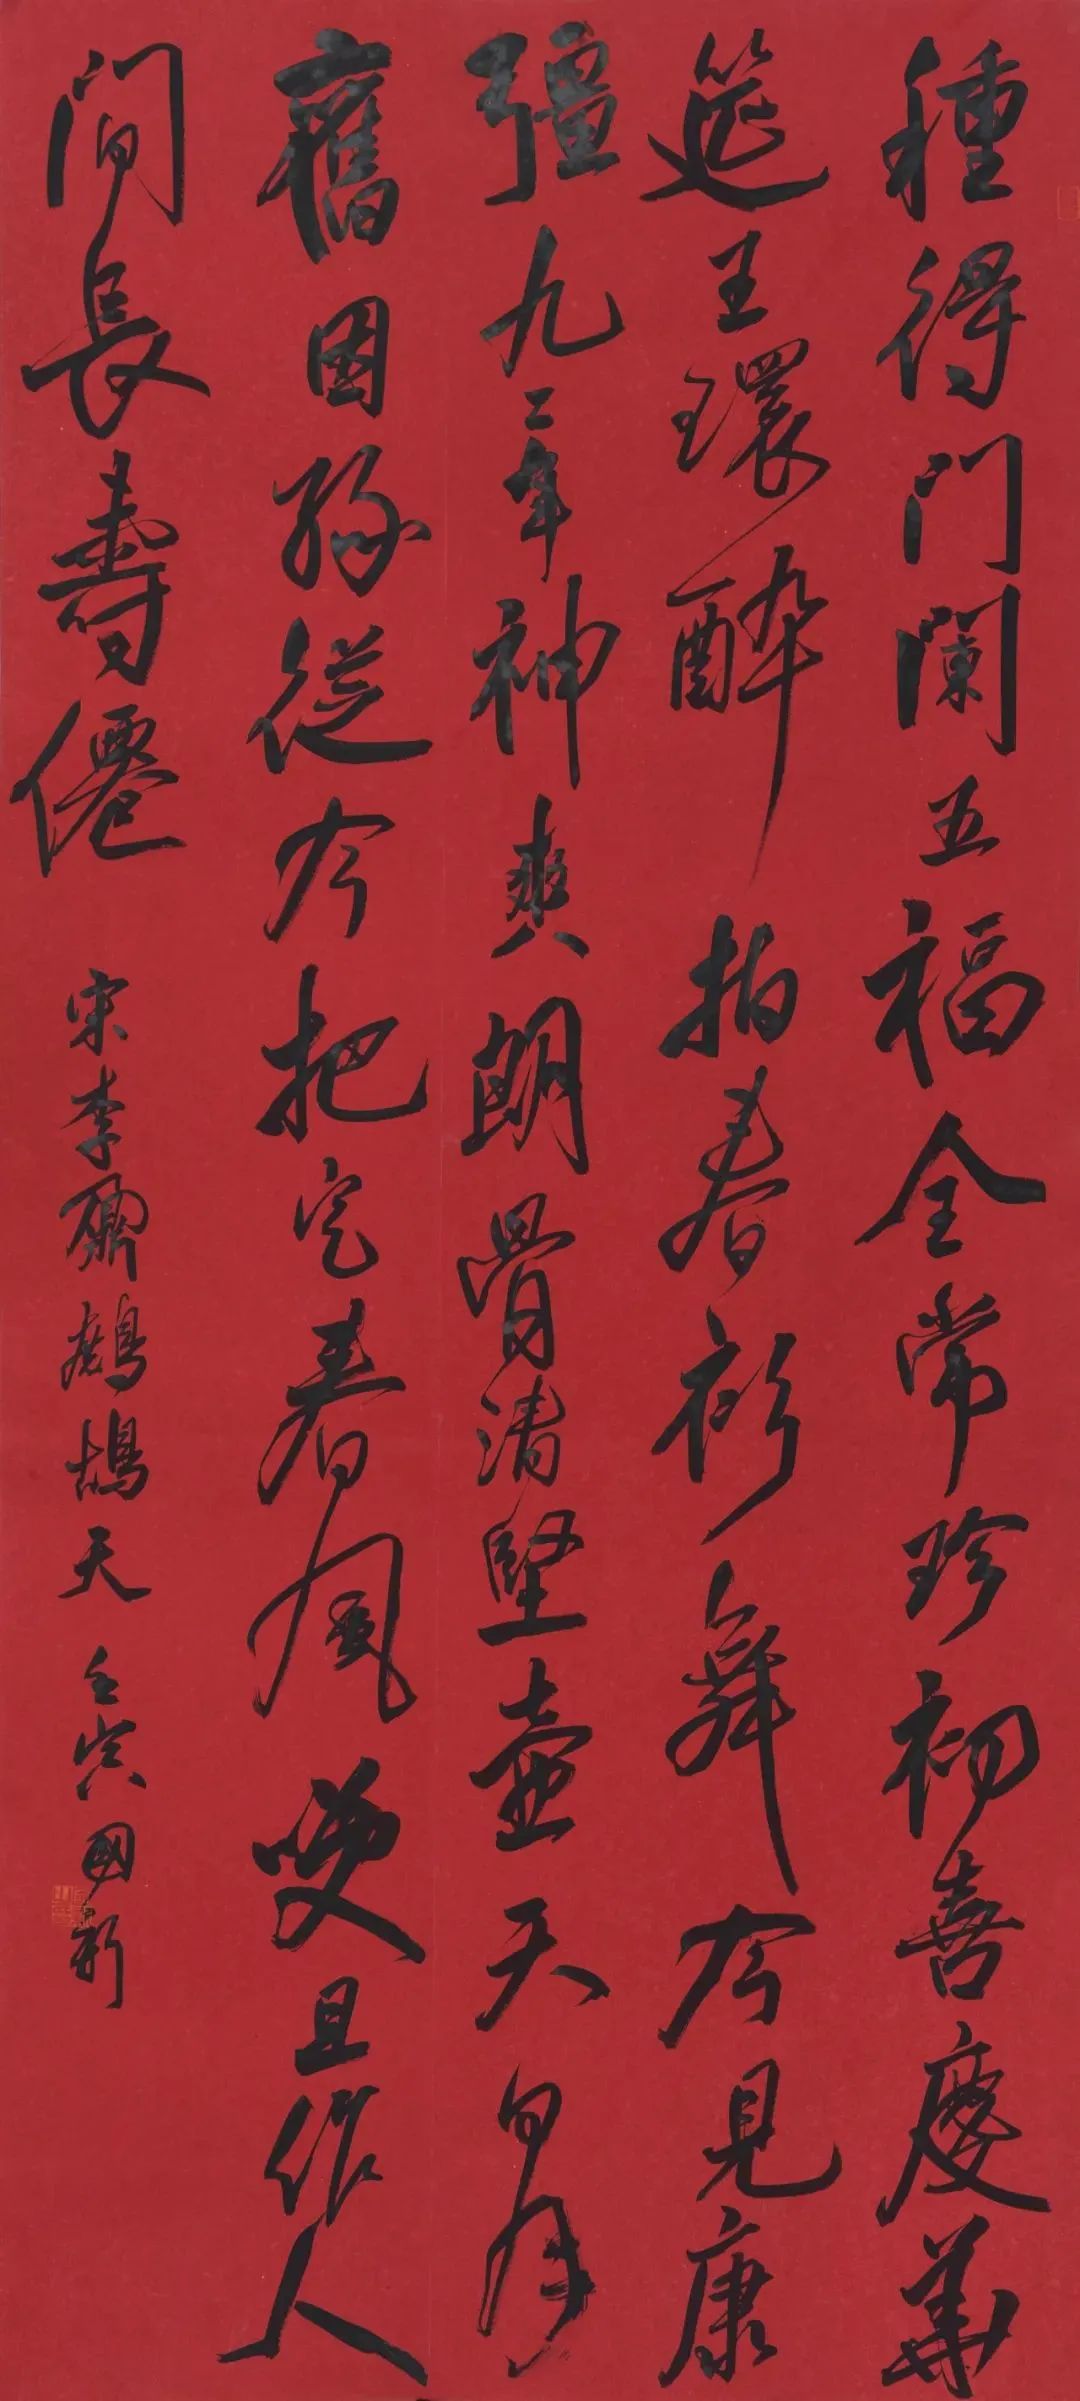 種得門闌五福全常珍初喜慶華
筵王環醉拍春衫舞今見康
彊九々年神爽朗骨清堅壺天日月
舊因緣從今把定春風咲且作人
間長壽僊 宋李鼐鷓鴣天 壬寅 國新